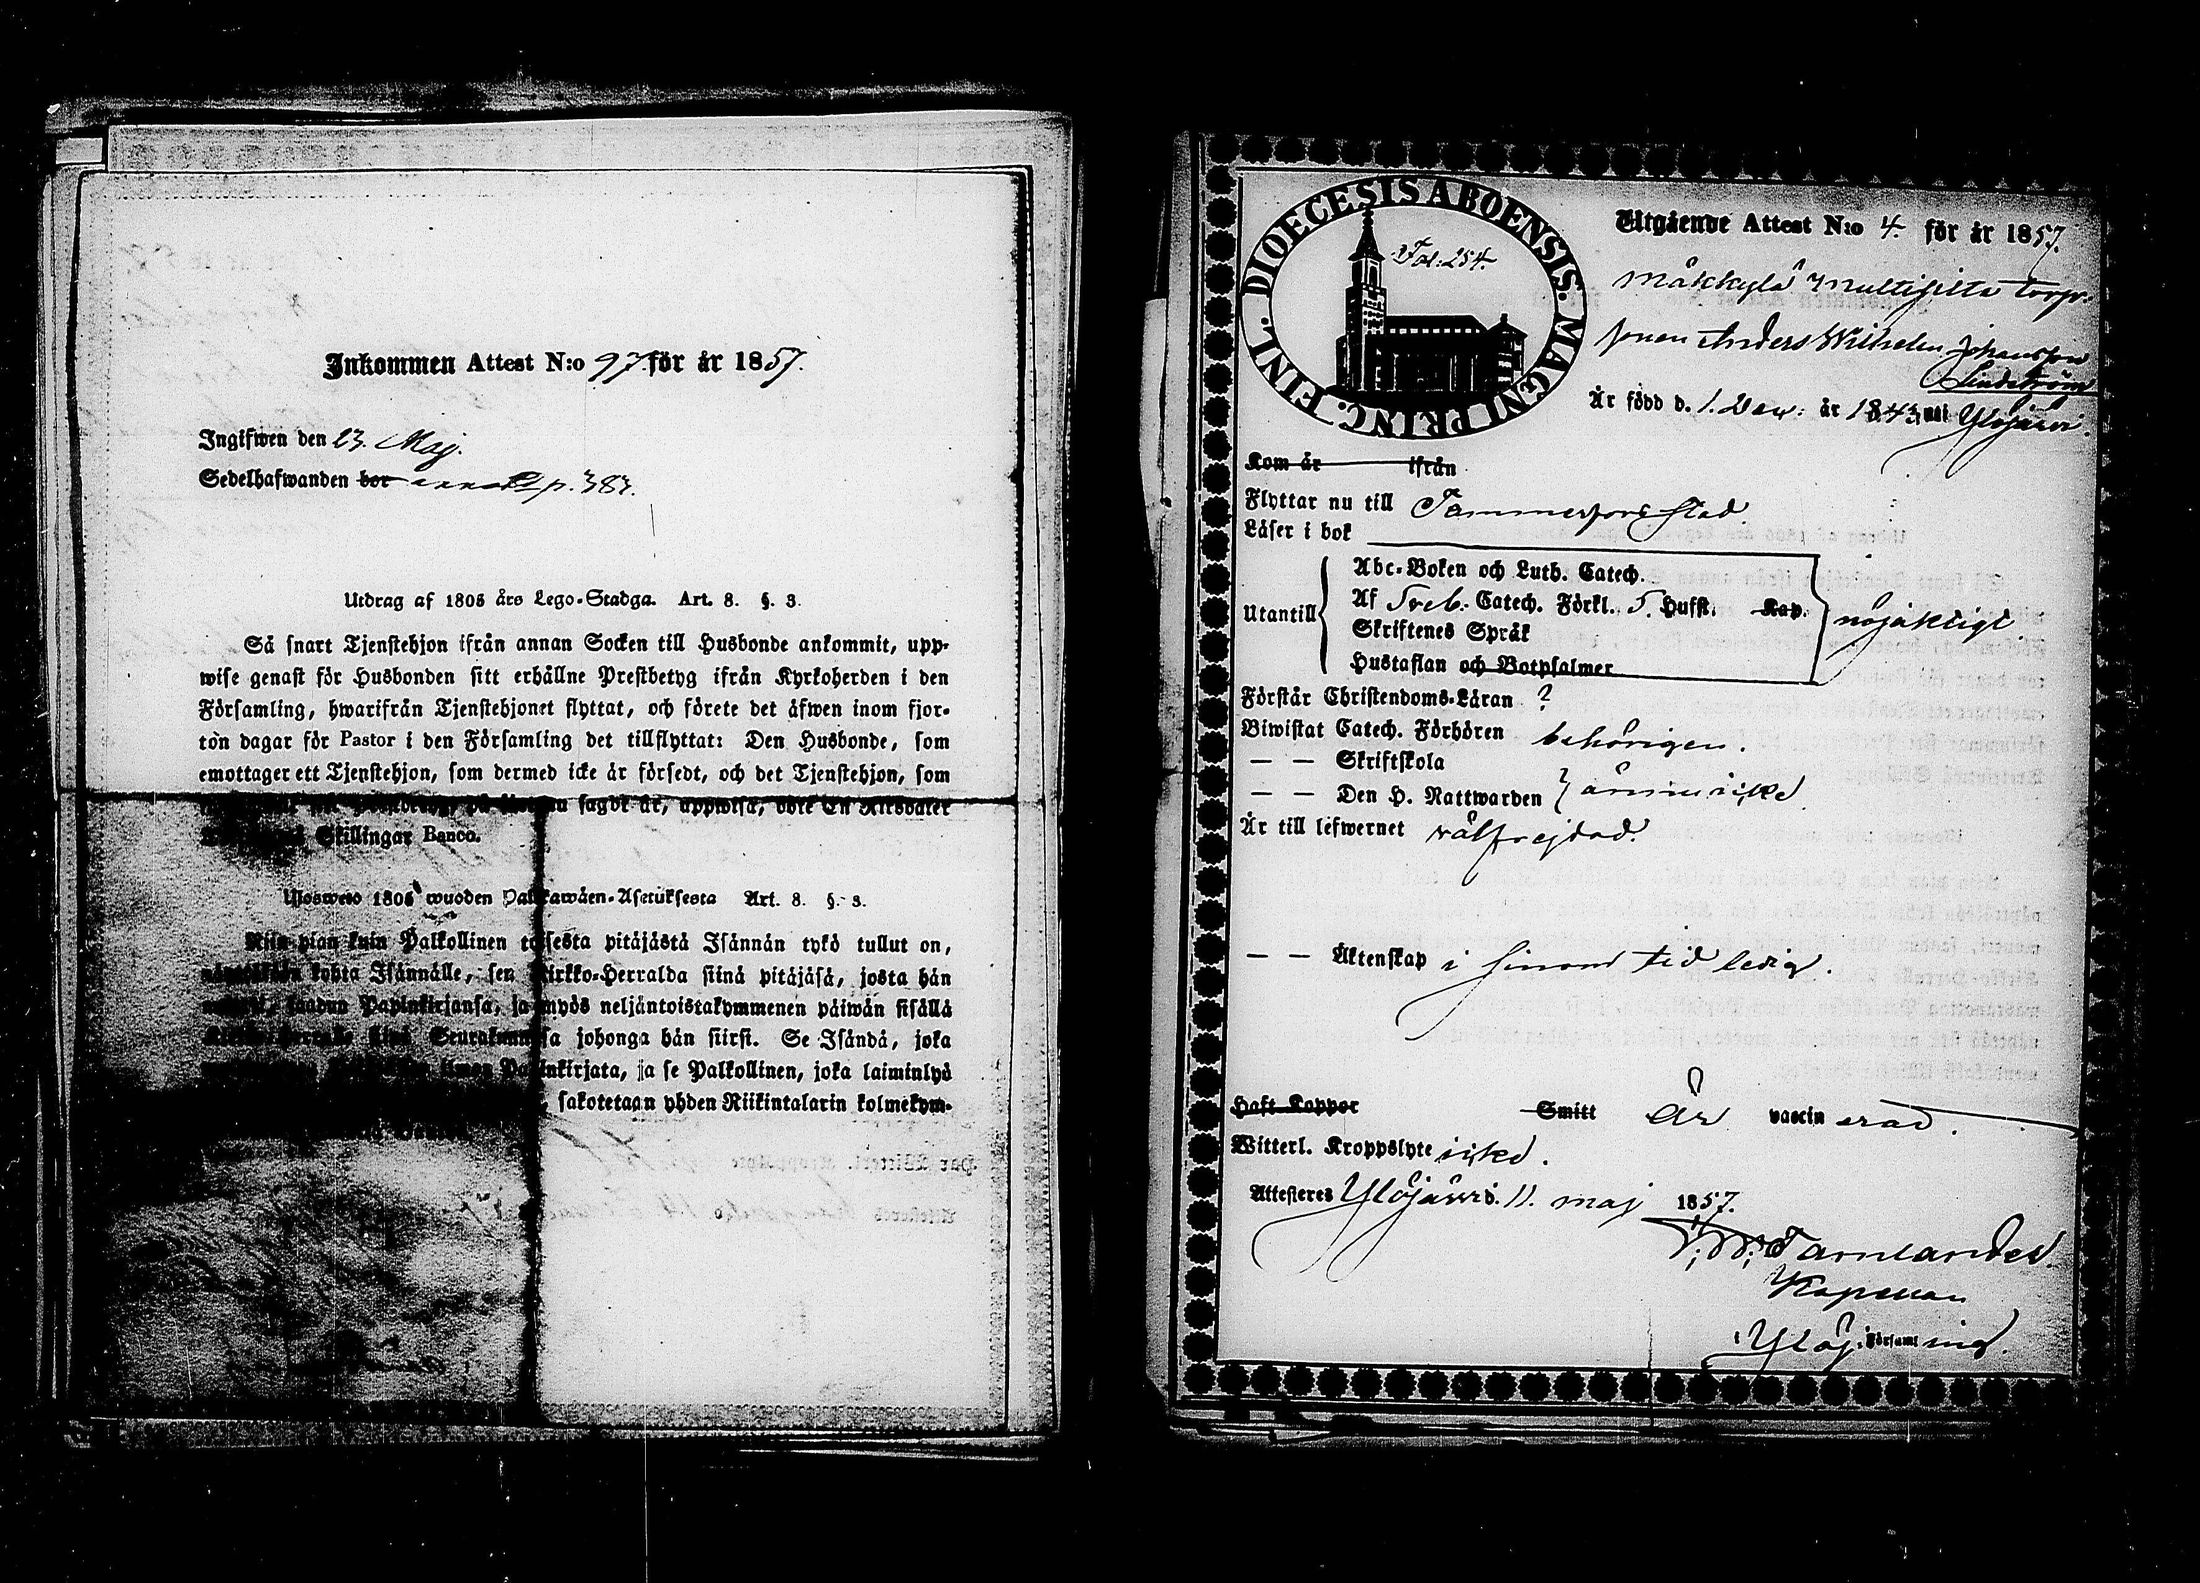 Inkommen Attest N:o 97. för år 1857.
Ingifwen den 23. Maj.
Sedelhafwanden bor annot. p. 383.
Utdrag af 1805 års Lego-Stadga. Art. 8. §. 3.
Så snart Tjenstehjon ifrån annan Socken till Husbonde ankommit, upp-
wise genast för Husbonden sitt erhållne Prestbetyg ifrån Kyrkoherden i den
Församling, hwarifrån Tjenstehjonet flyttat, och förete det äfwen inom fjor-
ton dagar för Pastor i den Församling det tillflyttat: Den Husbonde, som
emottager ett Tjenstehjon, som dermed icke är försedt, och det Tjenstehjon, som
sagdt är, uppwisa, böte En Riksdaler
Skillingar Banco.
Ulosweto 1805 wuoden Palkawäen-Asetuksesta Art. 8. §. 3.
Niin pian kuin Palkollinen toisesta pitäjästä Isännän tykö tullut on,
kohta Isännälle, sen Kirkko-Herralda siinä pitäjäsä, josta hän
saadun Papinkirjansa, ja myös neljäntoistakymmenen päiwän sisällä
Seurakunnasa johonga hän siirsi. Se Isändä, joka
ilman Papinkirjata, ja se Palkollinen, joka laiminlyö
sakotetaan yhden Riikintalarin kolmekym-
DIOECESIS ABOENSIS. MAGNI PRINC. FINL.
Fol: 254.
Utgående Attest N:o 4. för år 1857.
Mäkkylä Multisilta torp-
sonen Anders Wilhelm Johansson
Lindström
Är född d. 1. Dec: år 1843 uti Ylöjärvi.
Kom år ifrån
Flyttar nu till Tammerfors stad
Läser i bok
Abc-Boken och Luth. Catech.
Af Sveb. Catech. Förkl. 5. Hufst. Kap.
Utantill nöjaktigt
Skriftenes Språk
Hustaflan och Botpsalmer
Förstår Christendoms-Läran ?
Biwistat Catech. Förhören behörigen.
— — Skriftskola
— — Den H. Nattwarden } ännu icke
Är till lefwernet välfrejdad.
— — Äktenskap i sinom tid ledig.
Haft Koppor Smitt Är vaccinerad.
Witterl. Kroppslyte icke.
Attesteras Ylöjärvi d. 11. maj 1857.
Kapellan
i Ylöj. Församling.